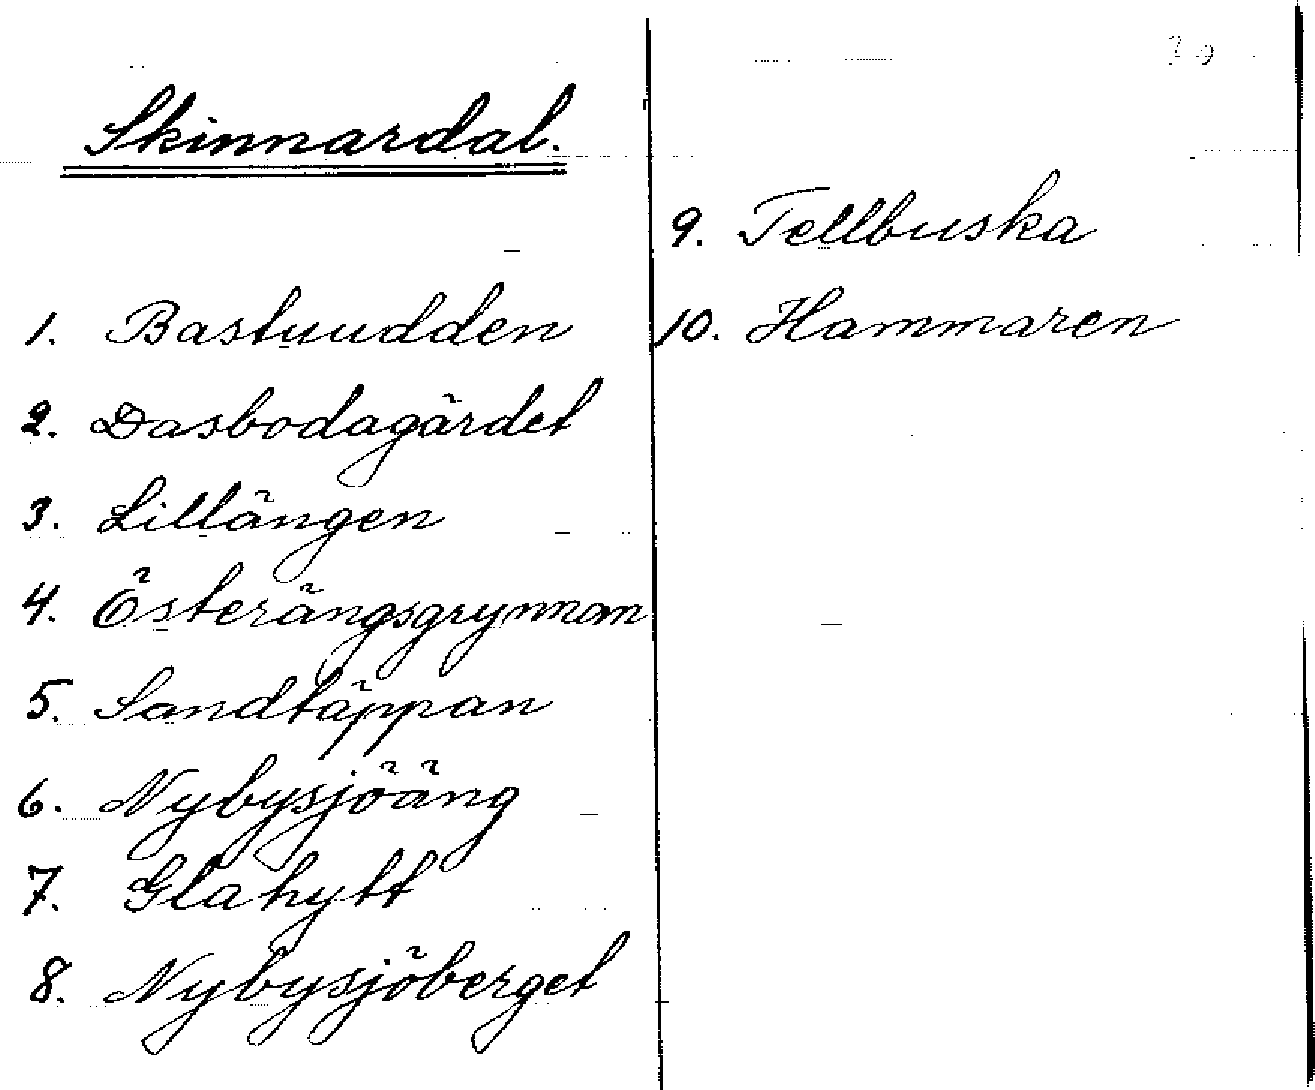 Skinnardal.
1. Bastuudden
2. Dasbodagärdet
3. Lillängen
4. Österängsgrynnan
5. Sandtäppan
6. Nybysjöäng
7. Glahytt
8. Nybysjöberget
9. Tellbuska
10. Hammaren